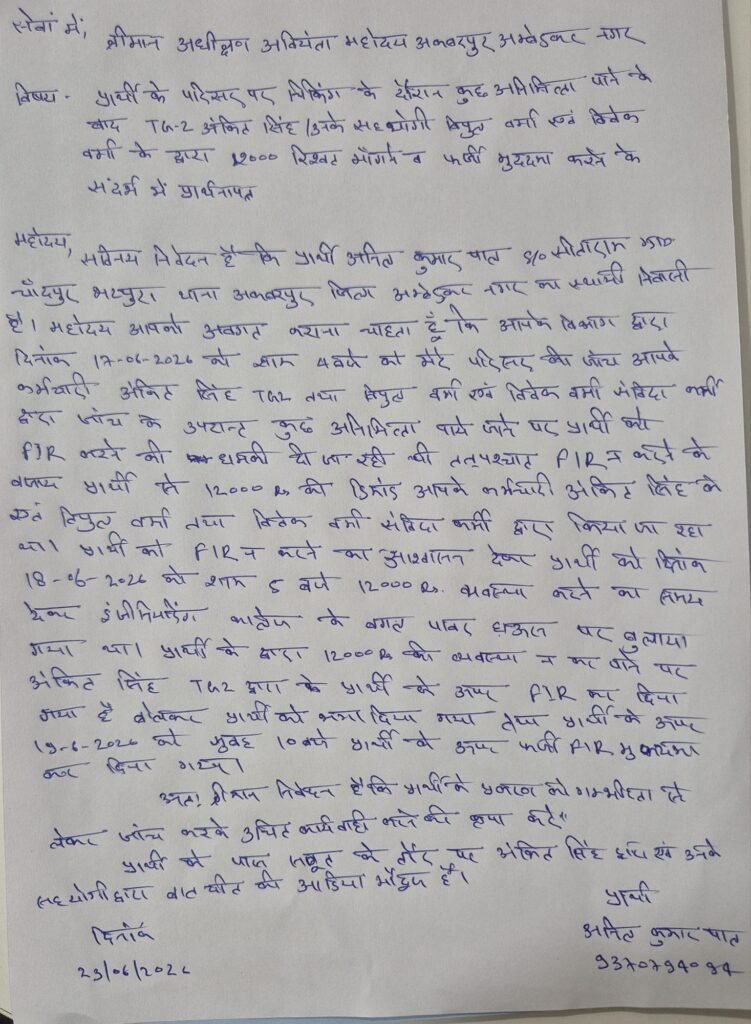 सेवा में,
श्रीमान अधीक्षण अभियंता महोदय अकबरपुर अम्बेडकर नगर
विषय - प्रार्थी के परिसर पर चेकिंग के दौरान कुछ अनिमित्ता पाने के
बाद TG-2 अंकित सिंह / उनके सहयोगी विपुल वर्मा एवं विवेक
वर्मा के द्वारा 12000 रिश्वत माँगने व फर्जी मुकदमा करने के
संदर्भ में प्रार्थनापत्र
महोदय,
सविनय निवेदन है कि प्रार्थी अनिल कुमार पाल S/o सीताराम
चाँदपुर भटपुरा थाना अकबरपुर जिला अम्बेडकर नगर का स्थायी निवासी
है। महोदय आपको अवगत कराना चाहता हूँ कि आपके विभाग द्वारा
दिनांक 17-06-2026 को शाम 4 बजे को मेरे परिसर की जाँच आपके
कर्मचारी अंकित सिंह TG2 तथा विपुल वर्मा एवं विवेक वर्मा संविदा कर्मी
द्वारा जाँच के उपरान्त कुछ अनिमित्ता पाये जाने पर प्रार्थी को
FIR करने की धमकी दी जा रही थी तत्पश्चात FIR न करने के
बजाय प्रार्थी से 12000 Rs की डिमांड आपके कर्मचारी अंकित सिंह के
एवं विपुल वर्मा तथा विवेक वर्मा संविदा कर्मी द्वारा किया जा रहा
था। प्रार्थी को FIR न करने का आश्वासन देकर प्रार्थी को दिनांक
18-06-2026 को शाम 5 बजे 12000 Rs. व्यवस्था करने का समय
देकर इंजीनियरिंग कालेज के बगल पावर हाऊस पर बुलाया
गया था। प्रार्थी के द्वारा 12000 Rs की व्यवस्था न कर पाने पर
अंकित सिंह TG2 द्वारा के प्रार्थी के ऊपर FIR कर दिया
गया है बोलकर प्रार्थी को भगा दिया गया तथा प्रार्थी के ऊपर
19-6-2026 को सुबह 10 बजे प्रार्थी के ऊपर फर्जी FIR मुकदमा
कर दिया गया।
अतः श्रीमान निवेदन है कि प्रार्थी के प्रकरण को गम्भीरता से
लेकर जाँच करके उचित कार्यवाही करने की कृपा करें"
प्रार्थी के पास सबूत के तौर पर अंकित सिंह एवं उनके
सहयोगी द्वारा बात चीत की आडियो मौजूद है।
प्रार्थी
दिनांक
अनिल कुमार पाल
23/06/2026
9370794094